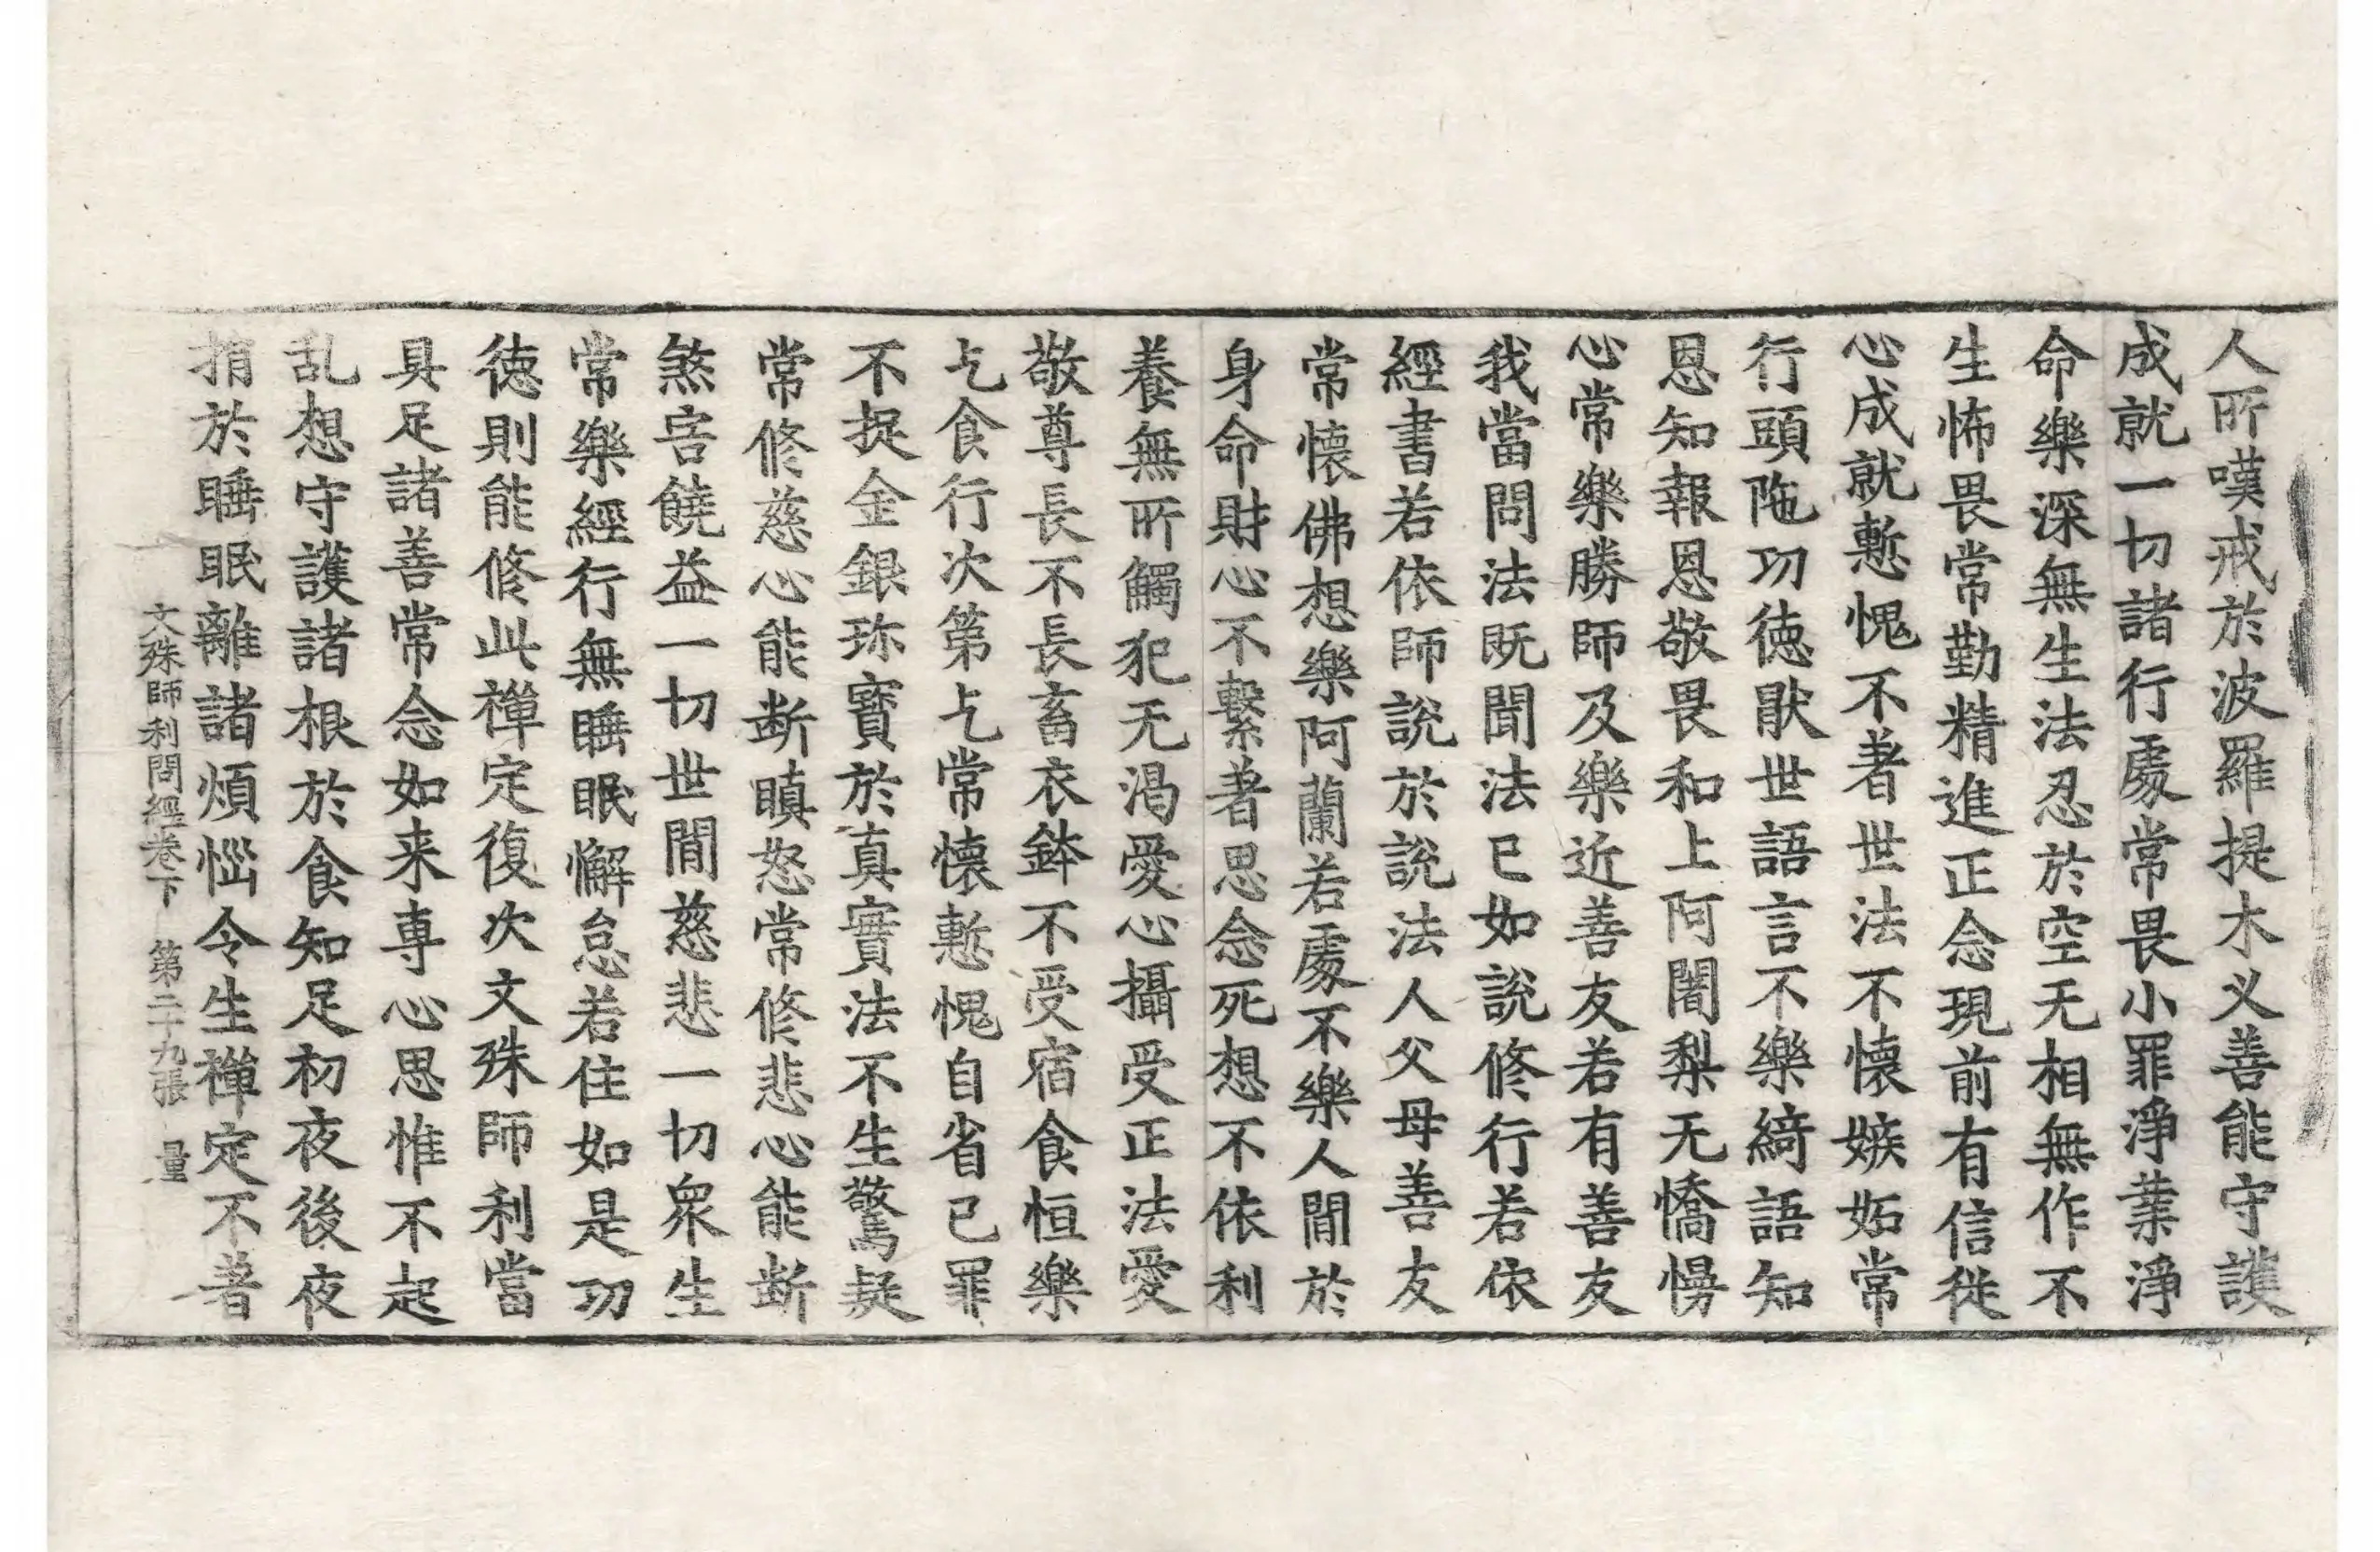 人所嘆戒於波羅提木义善能守護
成就一切諸行處常畏小罪淨業淨
命樂深無生法忍於空无相無作不
生怖畏常勤精進正念現前有信從
心成就慙愧不著世法不懷嫉妬常
行頭陁功德猒世語言不樂綺語知
恩知報恩敬畏和上阿闍梨无憍慢
心常樂勝師及樂近善友若有善友
我當問法既聞法已如說修行若依
經書若依師說於說法人父母善友
常懷佛想樂阿蘭若處不樂人間於
身命財心不繫著思念死想不依利
養無所觸犯无渴愛心攝受正法愛
敬尊長不長畜衣鉢不受宿食恒樂
乞食行次第乞常懷慙愧自省已罪
不捉金銀珎寳於真實法不生驚疑
常修慈心能断瞋怒常修悲心能断
煞害饒益一切世間慈悲一切衆生
常樂經行無睡眠懈怠若住如是功
德則能修此禪定復次文殊師利當
具足諸善常念如来專心思惟不起
乱想守護諸根於食知足初夜後夜
捎於睡眠離諸煩惱令生禪定不著
文殊師利問經卷下 第二十九張 量